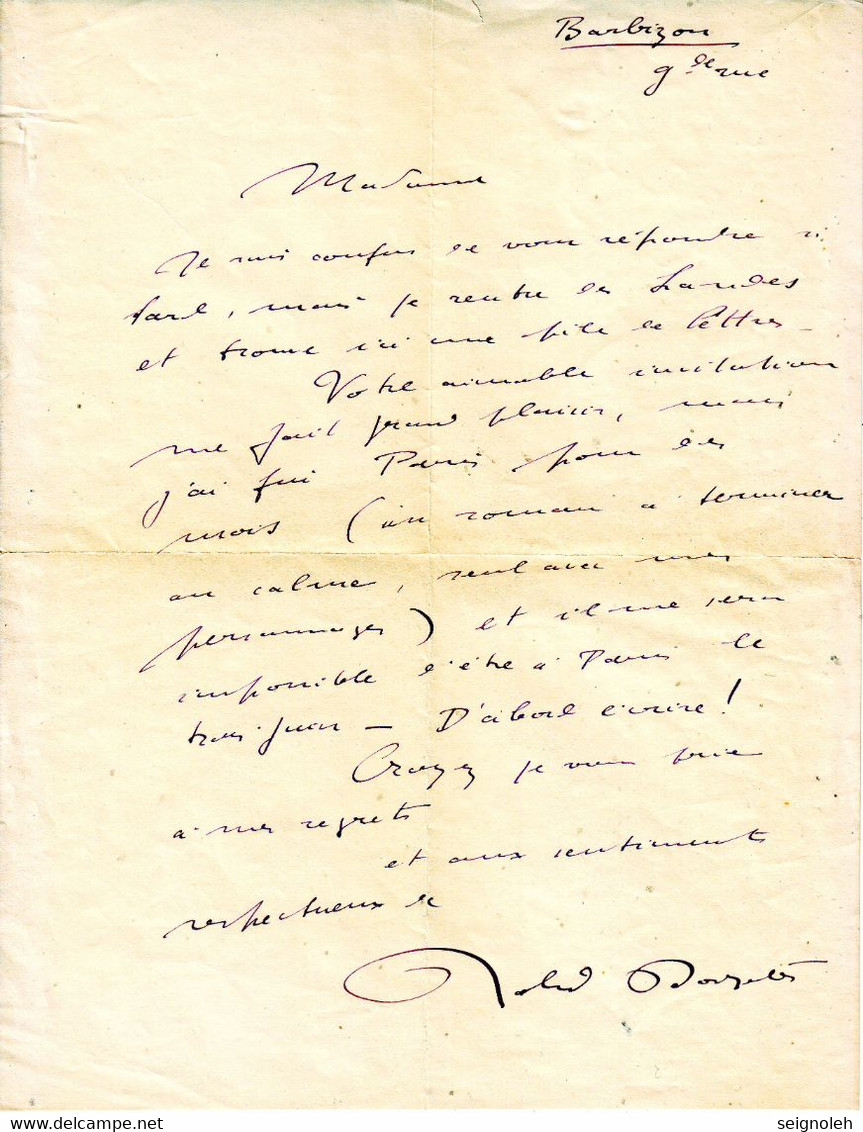 Barbizon
gde rue
Madame
Je suis confus de vous répondre si
tard, mais je rentre des Landes
et trouve ici une pile de lettres -
Votre aimable invitation
me fait grand plaisir, mais
j'ai fui Paris pour des
mois (un roman à terminer
au calme, seul avec mes
personnages) et il me sera
impossible d'être à Paris le
trois juin - D'abord écrire!
Croyez je vous prie
à mes regrets
et aux sentiments
respectueux de
Roland Dorgelès
seignoleh